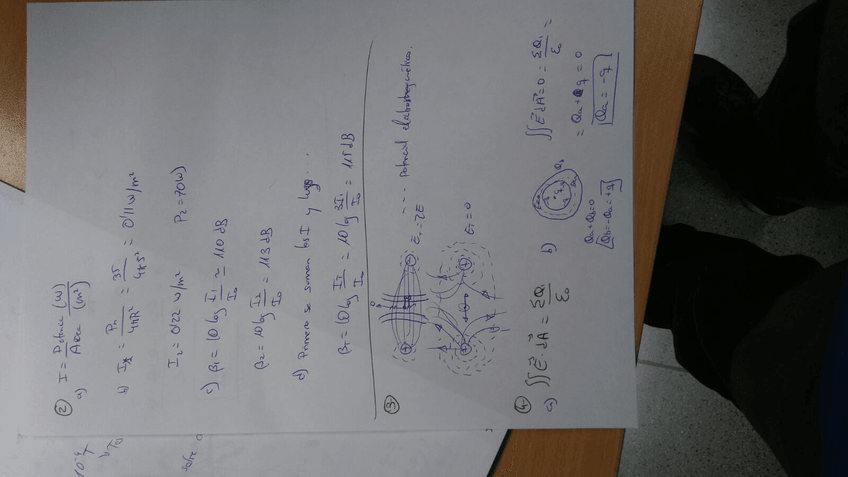 ② I = Potencia (W) / Área (m²)
a)
b) I₁ = P₁ / 4πR² = 35 / 4π5² = 0'11 W/m²
I₂ = 0'22 W/m² P₂ = 70W)
c) β₁ = 10 log I₁/I₀ ≈ 110 dB
β₂ = 10 log I₂/I₀ = 113 dB
d) Primero se suman las I y luego...
βT = 10 log IT/I₀ = 10 log 3I₁/I₀ = 115 dB
③
ET = 2E --- potencial electromagnético.
ET = 0
④
a) ∬ E · dA = ΣQi / ε₀
b) ∬ E dA = 0 = ΣQi / ε₀ =
= Qa + q = 0
Qa = -q
Qa + Qb = 0
Qb = -Qa = +q
10⁻⁹